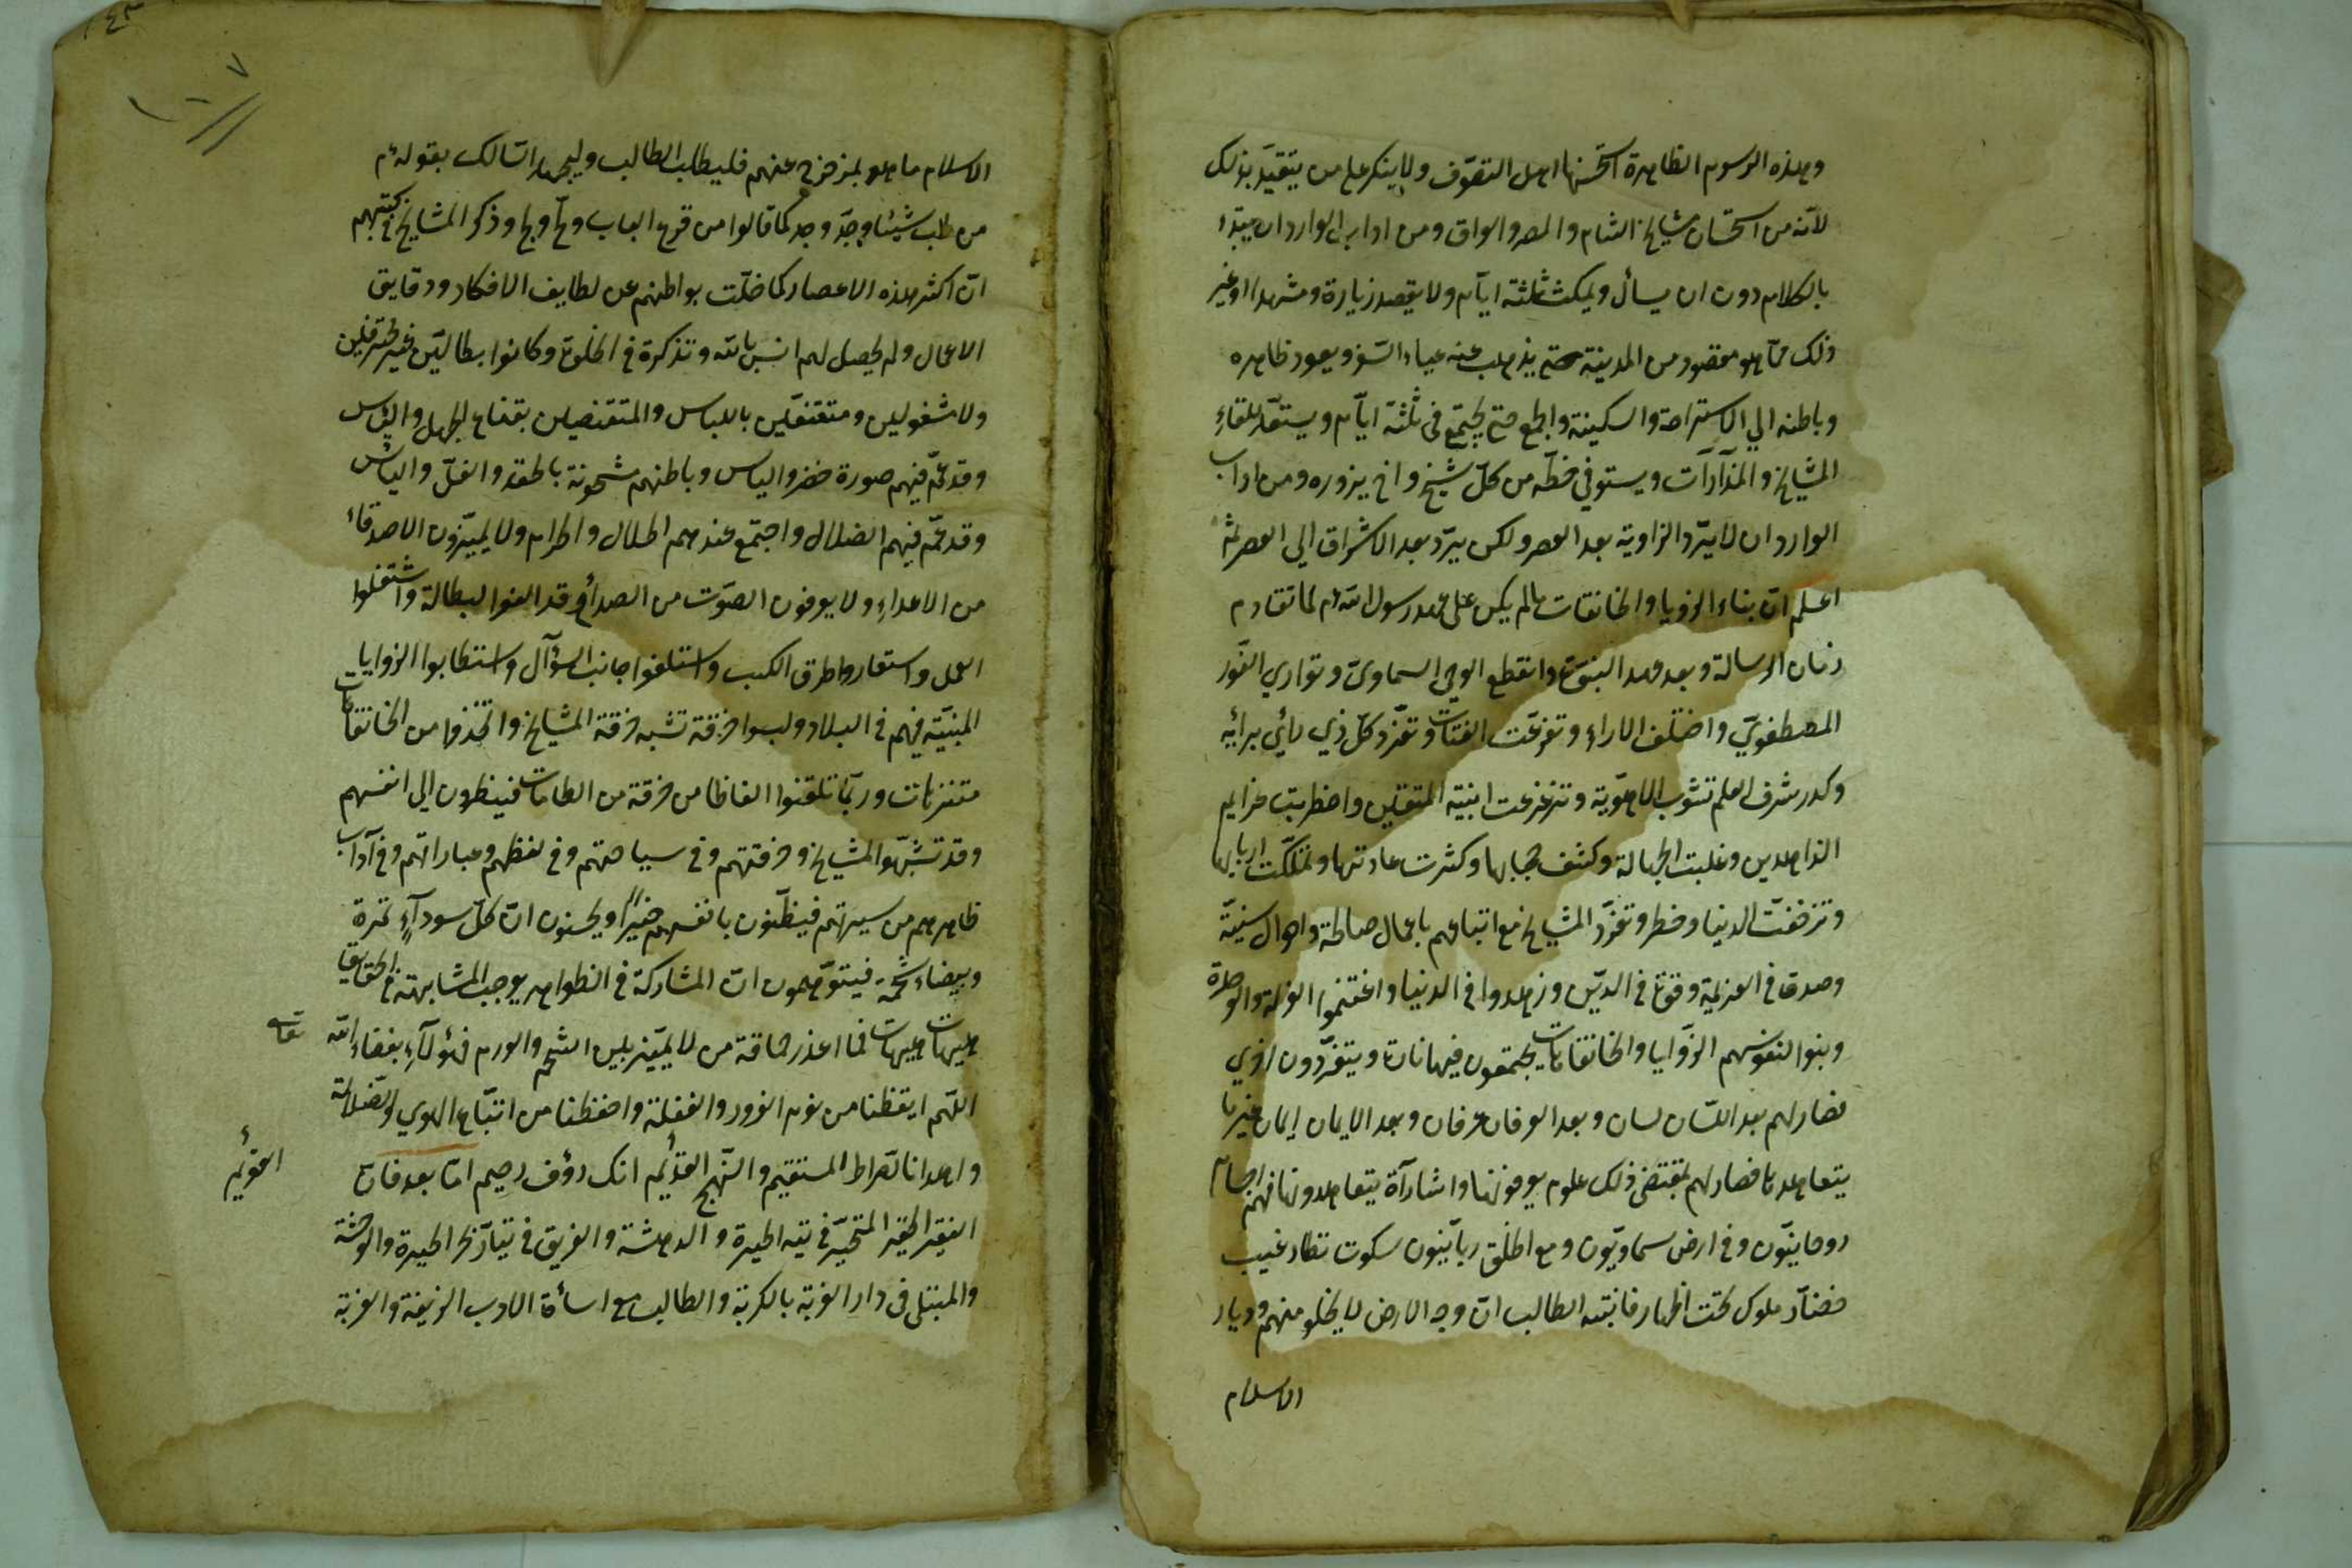 وهذه الرسوم الظاهرة استحسنها اهل التصوّف ولا ينكر على من يتقيّد بذلك
لانّه من استحسان مشايخ الشام والمصر والعراق ومن اداب الوارد ان يبتدء
بالكلام دون ان يسأل ويمكث ثلثة ايّام ولا يقصد زيارة ومشهدا او غير
ذلك ممّا هو مقصود من المدينة حتى يذهب عنه عياء السّفر ويعود ظاهره
وباطنه الي الاستراحة والسكينة والجمع حتى يجتمع في ثلثة ايّام ويستعدّ للقاءِ
المشايخ والمزارات ويستوفي حظّه من كلّ شيخ واخ يزوره ومن اداب
الوارد ان لا يرد الزاوية بعد العصر ولكن يرد بعد الاشراق الي العصر ثم
اعلم انّ بناء الزوايا والخانقات ما لم يكن على عهد رسول الله لما تقادم
زمان الرسالة وبعد عهد النبوّة وانقطع الوحي السماويّ وتواري النّور
المصطفويّ واختلف الاراء وتفرد كلّ ذي رأي برأيه
وكدر شرف العلم بشوب الاهوية وتزعزعت ابنية المتقين واضطربت عزايم
الزاهدين وغلبت الجهالة وكثف حجابها وكثرت عادتها وتملّكت اربابها
وتزخرفت الدنيا وخطر وتفرّد المشايخ مع اتباعهم باعمال صالحة واحوال سنيّة
وصدق في العزيمة وقوّة في الدّين وزهدوا في الدنيا واغتنموا العزلة والوحدة
وبنوا لنفوسهم الزّوايا والخانقاهات يجتمعون فيها تارة ويتفرّدون اخري
فصار لهم بعد اللسان لسان وبعد العرفان عرفان وبعد الايمان ايمان غير ما
يتعاهد فصار لهم بمقتضى ذلك علوم يعرفونها واشارات يتعاهدونها فهم اجسام
روحانيّون وفي ارض سماويّون ومع الخلق ربانيّون سكوت نظار غيب
حضّار ملوك تحت اطمار فانتبه الطالب انّ وجه الارض لا يخلو منهم وديار
الاسلام
الاسلام ما هو بمزخرج عنهم فليطلب الطالب وليجهد السّالك بقوله
من طلب شيئا وجدّ وجد كما قالوا من قرع الباب ولجّ ولج وذكر المشايخ في كتبهم
انّ اكثر هذه الاعصار كما خلت بواطنهم عن لطايف الافكار ودقايق
الاعمال ولم يحصل لهم انس بالله وتذكرة في الخلوة وكانوا بطالين غير محترفين
ولا مشغولين باللباس والمتقنعين بقناع الجهل والتأس
وقد عمّ فيهم صورة خضر والياس وباطنهم مشحونة بالحقد والغلّ والياس
وقد عمّ فيهم الضلال واجتمع عندهم الحلال والحرام ولا يميّزون الاصدقاء
من الاعداءِ ولا يعرفون الصّوت من الصداء قد الفوا البطالة واشتغلوا
العمل واستعاروا طرق الكسب واستلفوا جانب السؤال واستطابوا الزوايا
المبنيّة فيهم في البلاد ولبسوا خرقة تشبه خرقة المشايخ واتخذوا من الخانقات
متنزهات وربّما تلقنوا الفاظا من خرقة من الطامات فينظرون الي انفسهم
وقد تشبّهوا المشايخ وخرقتهم وفي سياحتهم وفي لفظهم وعباراتهم وفي آداب
ظاهرهم من سيرتهم فيظنّون بانفسهم خيرًا ويحسنون انّ كلّ سودآءٍ تمرة
وبيضاء شحمة فيتوهّمون انّ المشاركة في الظواهر يوجب المشابهة في الحقايق
هيهات هيهات فما اعذر حماقة من لا يميّز بين الشحم والورم فهؤلآءِ بغضاء الله
اللّهم ايقظنا من نوم الغرور والغفلة واحفظنا من اتّباع الهوي والضلالة
واهدنا الصّراط المستقيم والنّهج القديم انك رؤف رحيم امّا بعد فان
القويم
الفقير الحقير المتحيّر في تيه الحيرة والدهشة والغريق في تيّار بحر الحيرة والوحشة
والمبتلى في دار الغربة بالكربة والطالب مع اساءة الادب الزيفة والغربة